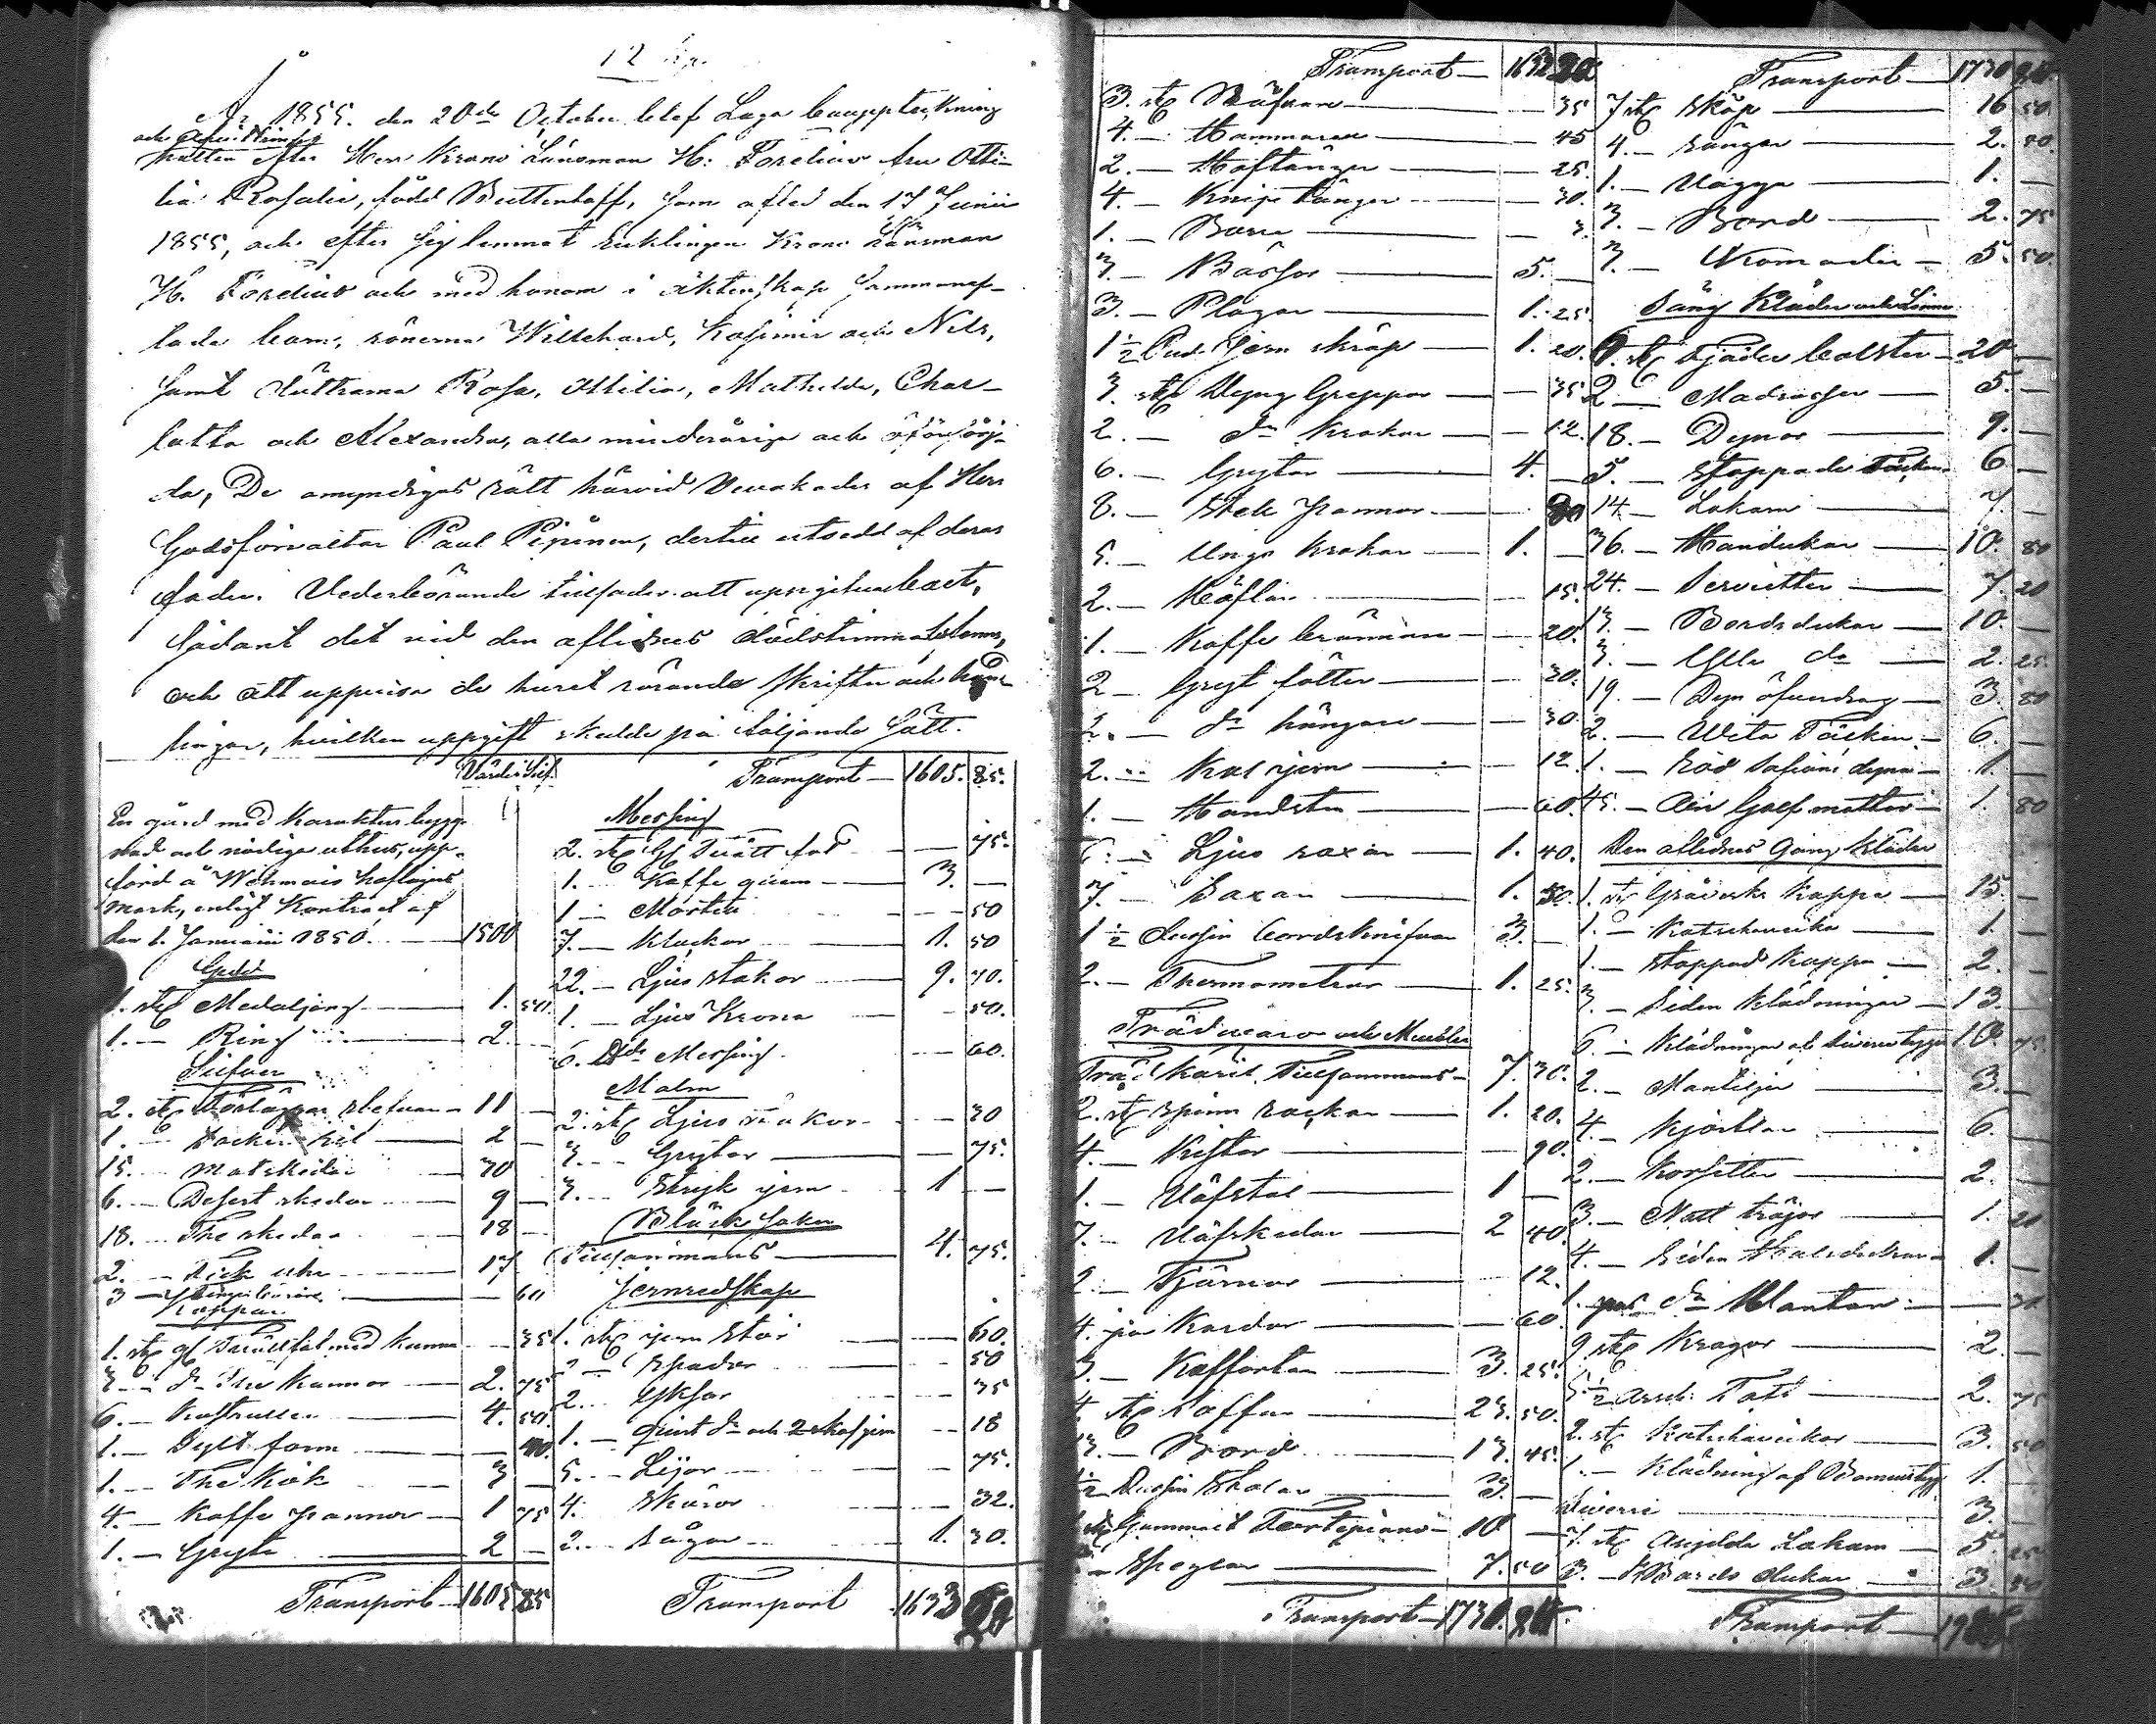 12
År 1855. den 20de October blef Laga bouppteckning
och
hållen efter Herr Krono Länsman H: Forelius fru Otti-
lia Rosalie, född Buttenhoff, som afled den 17 Junii
1855, och efter sig lemnat enklingen Krono Länsman
H. Forelius och med honom i äktenskap sammanaf-
lade barn, sönerne Willehard, Kasimir och Nils,
samt döttrarna Rosa, Ottilia, Mathilda, Char-
lotta och Alexandra, alla minderåriga och oförsörj-
da, De omyndigas rätt härvid bevakades af Herr
Godsförvaltar Paul Pipinen, dertill utsedd af deras
fader. Vederbörande tillsades att uppgifva boet,
sådant det vid den aflidnes dödstimma befanns,
och att uppvisa de huset rörande skrifter och hand-
lingar, hvilken uppgift skedde på följande sätt.
Värde Silf.
En gård med Karaktersbygg-
nad och nödiga uthus, upp-
förd å Wehmais hoflägers
mark, enligt Kontract af
den 1. Januarii 1850. — 1500
Guld
1. st Medaljong — 1. 50.
1. — Ring — 2.
Silfver
2. st — 11 —
1. — — 2 —
15. — Matskedar — 30
6. — Desert skedar — 9 —
18. — The skedar — 18 —
2. — Fick uhr — 17
3 — — 60
Koppar
1. st gl Tvättfat med kanna — 35
3. — do The kannor — 2. 75
6. — Kastruller — 4. 50.
1. — Sylt form — 40.
1. — The kök — 3 —
4. — Kaffe pannor — 1 75
1. — Gryta — 2 —
Transport — 1605 85
Transport — 1605. 85.
Messing
2. st gl Tvätt fat — 75.
1. — Kaffe qvarn — 3. —
1 — Mortel — 50
7. — Klockor — 1. 50
22. — Ljus stakar — 9. 70.
1. — Ljus Krona — 50.
6. Messing — 60.
Malm
2. st Ljus stakar — 30
3. — Grytor — 75.
3. — Stryk jern — 1 —
Bläck saker
Tillsammans — 4. 75.
Jernredskap
1. st jern stör — 60.
— Spadar — 50
2. — Yxor — 35
1. — do och 2 — 18
5. — Lijor — 75.
4. — Skäror — 32.
2. — Sågar — 1. 30.
Transport 1633
Transport — 1633 20
3. st Näfvrare — 35
4. — Hammaren — 45
2. — Hoftänger — 25.
4. — Knip tänger — 30.
1. — Borr — 3.
3. — Bössor — 5. —
3. — Plogar — 1. 25.
1½ Pud. Jern skrap — 1. 20.
3. st Dyng Greppar — 35
2. — do Krokar — 12.
6. — Grytor — 4. —
8. — Stek pannor — 80
5. — Ungs Krokar — 1. —
2. — Höflar — 15.
1. — Kaffe brännare — 20.
2 — Gryt fötter — 30.
2. — do hängare — 30.
2. — Kol jern — 12.
1. — Handsten — 60.
6. — Ljus saxar — 1. 40.
7. — Saxar — 1. 50.
1½ Dussin bordsknifvar 3. —
2. — Thermometrar — 1. 25.
Trädvaror och Meubler
Träd Käril Tillsammans — 7. 30.
2. st Spinn rockar — 1. 20.
4. — Kistor — 90.
1. — Väfstol — 1 —
7. — Väfskedar — 2 40.
2. — Tjärnor — 12.
4. par Kardor — 60.
3. — Kofforten — 3. 25.
4. st Soffor — 23. 50.
13. — Bord — 13. 45.
½ Dussin Stolar — 3. —
1 st Gammalt Fortepiano — 10 —
— Speglar — 7. 50
Transport — 1730.
Transport — 1730
7 st Skåp — 16 50.
4. — Sängar — 2. 80.
1. — Vagga — 1. —
3. — Bord — 2. 75
3. — Komoder — 5. 50.
Säng Kläder och Linne
6. st Fjäder bolster — 20 —
2 — Madrasser — 5. —
18. — Dynor — 9. —
5. — Stoppade Täcken — 6 —
14. — Lakan — 7 —
36. — Handukar — 10. 80
24. — Servietter — 7. 20
13. — Bordsdukar — 10. —
3. — Ylle do — 2. 25.
19. — Dyn öfverdrag — 3. 80
2. — Hvita Täcken — 6. —
1. — Röd Safians dyna — 1. —
45. — Aln Golf mattor — 1. 80
Den aflidnes Gång kläder
1. st Gråverks Kappa — 15. —
1. — Katschaveika — 1. —
1. — Stoppad Kappa — 2. —
3. — Siden Klädningar — 13.
6. — Klädningar af diverse tyger 10. 75.
2. — Mantiljer — 3. —
4. — Kjortlar — 6. —
2. — Korsetter — 2. —
3. — Natt tröjor — 1. 20
4. — Siden Halsdukar — 1. —
1. par do Vantar — 30.
9 st Kragar — 2. —
5½ Arsch. Taft — 2. 75
2. st Katschaveikor — 3. 50
1. — Klädning af Bomulstyg 1. —
Diverse — 3. —
7. st Oseglda Lakan — 5. 25
3. — Bords dukar — 3. 50
Transport —